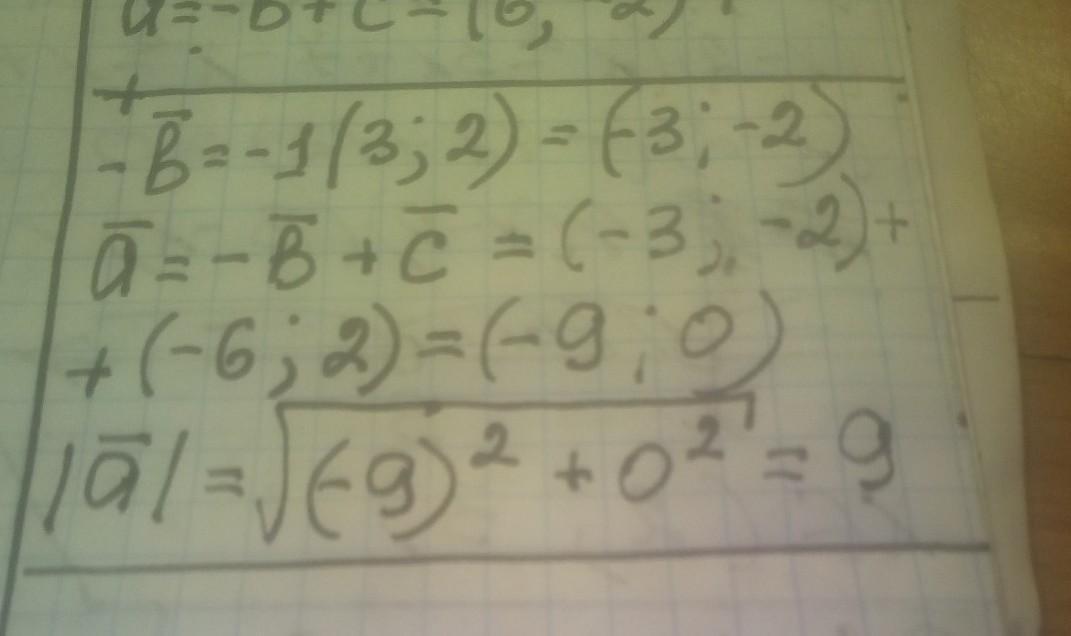 a=-b+c=(6, -2)
-b̅=-1(3; 2)=(-3; -2)
a̅=-b̅+c̅=(-3; -2)+
+(-6; 2)=(-9; 0)
|a̅|=√(-9)²+0²=9